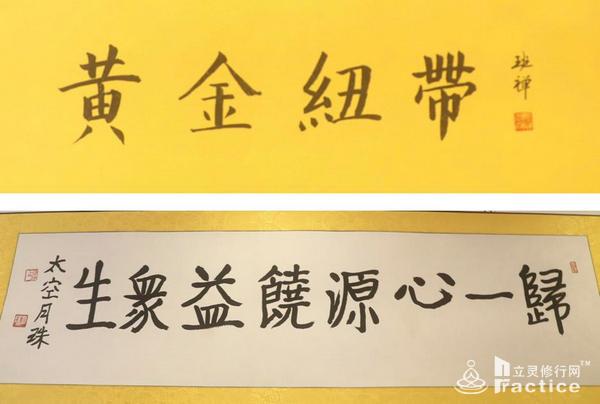 黄金紐帶
班禪
歸一心源饒益衆生
太空月珠
立灵修行网™
Practice